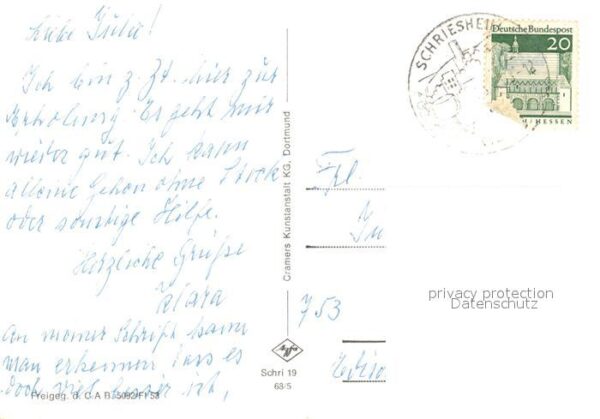 Liebe Jula!
Ich bin z. Zt. hier zur
Erholung. Es geht mir
wieder gut. Ich kann
alleine gehen ohne Stock
oder sonstige Hilfe.
Herzliche Grüße
Klara
An meiner Schrift kann
man erkennen dass es
doch viel besser ist,
Freigeg. d. C A B. 5092/F1 53
Cramers Kunstanstalt KG, Dortmund
Schri 19
63/5
SCHRIESHEIM
Deutsche Bundespost
20
/HESSEN
Frl.
753
privacy protection
Datenschutz